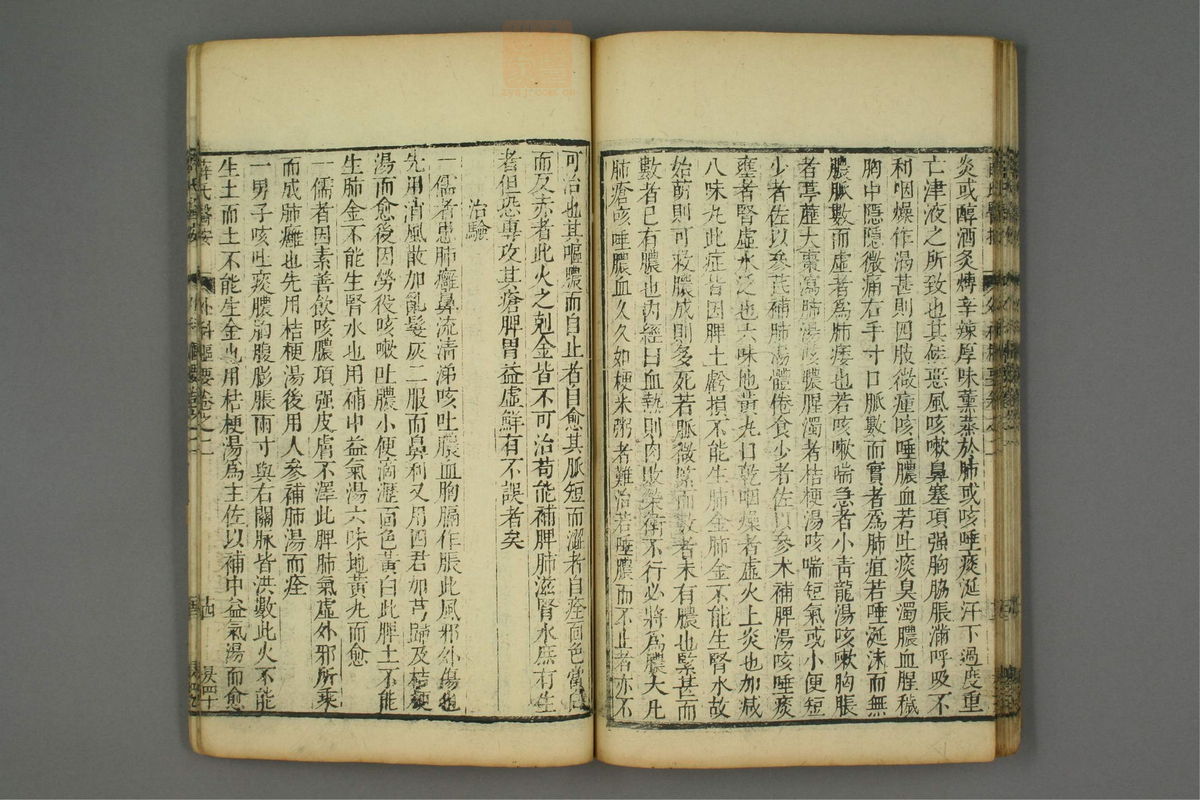 炎或醇酒炙煿辛辣厚味薰蒸於肺或咳唾痰涎汗下過度重
亡津液之所致也其候惡風咳嗽鼻塞項强胸脇脹滿呼吸不
利咽燥作渴甚則四肢微腫咳唾膿血若吐痰臭濁膿血腥穢
胸中隱隱微痛右手寸口脈數而實者爲肺疽若唾涎沫而無
膿脈數而虛者爲肺痿也若咳嗽喘急者小青龍湯咳嗽胸脹
者葶藶大棗瀉肺湯咳膿腥濁者桔梗湯咳喘短氣或小便短
少者佐以參芪補肺湯體倦食少者佐以參术補脾湯咳唾痰
壅者腎虛水泛也六味地黄丸口乾咽燥者虛火上炎也加减
八味丸此症皆因脾土虧損不能生肺金肺金不能生腎水故
始萠則可救膿成則多死若脈微緊而數者未有膿也緊甚而
數者已有膿也內經曰血熱則肉敗榮衛不行必將爲膿大凡
肺瘡咳唾膿血久久如粳米粥者難治若唾膿而不止者亦不
可治也其嘔膿而自止者自愈其脈短而澀者自痊面色當白
而反赤者此火之剋金皆不可治苟能補脾肺滋腎水庶有生
者但恐專攻其瘡脾胃益虛鮮有不誤者矣
治驗
一儒者患肺癰鼻流清涕咳吐膿血胸膈作脹此風邪外傷也
先用消風散加亂髮灰二服而鼻利又用四君加芎歸及桔梗
湯而愈後因勞役咳嗽吐膿小便滴瀝面色黄白此脾土不能
生肺金不能生腎水也用補中益氣湯六味地黄丸而愈
一儒者因素善飲咳膿項强皮膚不澤此脾肺氣虛外邪所乘
而成肺癰也先用桔梗湯後用人參補肺湯而痊
一男子咳吐痰膿胸腹膨脹兩寸與右關脉皆洪數此火不能
生土而土不能生金也用桔梗湯爲主佐以補中益氣湯而愈
薛氏醫按 外科樞要卷之二 十四